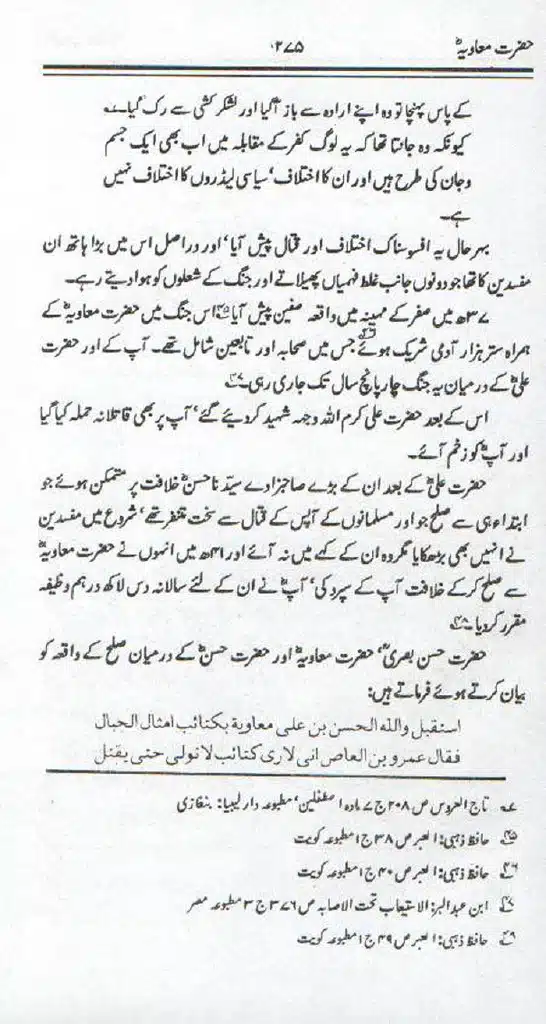 حضرت معاویہؓ ۲۷۵
کے پاس پہنچا تو وہ اپنے ارادہ سے باز آگیا اور لشکر کشی سے رک گیا۔
کیونکہ وہ جانتا تھا کہ یہ لوگ کفر کے مقابلہ میں اب بھی ایک جسم
وجان کی طرح ہیں اور ان کا اختلاف' سیاسی لیڈروں کا اختلاف نہیں
ہے۔
بہر حال یہ افسوسناک اختلاف اور قتال پیش آیا' اور دراصل اس میں بڑا ہاتھ ان
مفسدین کا تھا جو دونوں جانب غلط فہمیاں پھیلاتے اور جنگ کے شعلوں کو ہوا دیتے رہے۔
۳۷ھ میں صفر کے مہینہ میں واقعہ صفین پیش آیا۴۵ اس جنگ میں حضرت معاویہؓ کے
ہمراہ ستر ہزار آدمی شریک ہوئے۴۶ جس میں صحابہ اور تابعین شامل تھے۔ آپ کے اور حضرت
علیؓ کے درمیان یہ جنگ چار پانچ سال تک جاری رہی۔
اس کے بعد حضرت علی کرم اللہ وجہہ شہید کر دیئے گئے' آپ پر بھی قاتلانہ حملہ کیا گیا
اور آپؓ کو زخم آئے۔
حضرت علیؓ کے بعد ان کے بڑے صاجزادے سیّدنا حسنؓ خلافت پر متمکن ہوئے جو
ابتداء ہی سے صلح جو اور مسلمانوں کے آپس کے قتال سے سخت متنفر تھے' شروع میں مفسدین
نے انہیں بھی بڑھکایا مگر وہ ان کے کہے میں نہ آئے اور ۴۱ھ میں انہوں نے حضرت معاویہؓ
سے صلح کر کے خلافت آپ کے سپرد کی' آپؓ نے ان کے لئے سالانہ دس لاکھ درہم وظیفہ
مقرر کر دیا۔
حضرت حسن بصریؒ' حضرت معاویہؓ اور حضرت حسنؓ کے درمیان صلح کے واقعہ کو
بیان کرتے ہوئے فرماتے ہیں:
استقبل والله الحسن بن على معاوية بكتائب امثال الجبال
فقال عمرو بن العاص انى لارى كتائب لاتولى حتى يقتل
تاج العروس ص ۲۰۸ ج ۷ مادہ اصطفلین' مطبوعہ دار لیبیا: بنغازی
۴۵ حافظ ذہبی: العبر ص ۳۸ ج ا مطبوعہ کویت
۴۶ حافظ ذہبی: العبر ص ۴۰ ج ا مطبوعہ کویت
۴۷ ابن عبدالبر: الاستیعاب تحت الاصابہ ص ۳۷۶ ج ۳ مطبوعہ مصر
حافظ ذہبی: العبر ص ۴۹ ج ا مطبوعہ کویت